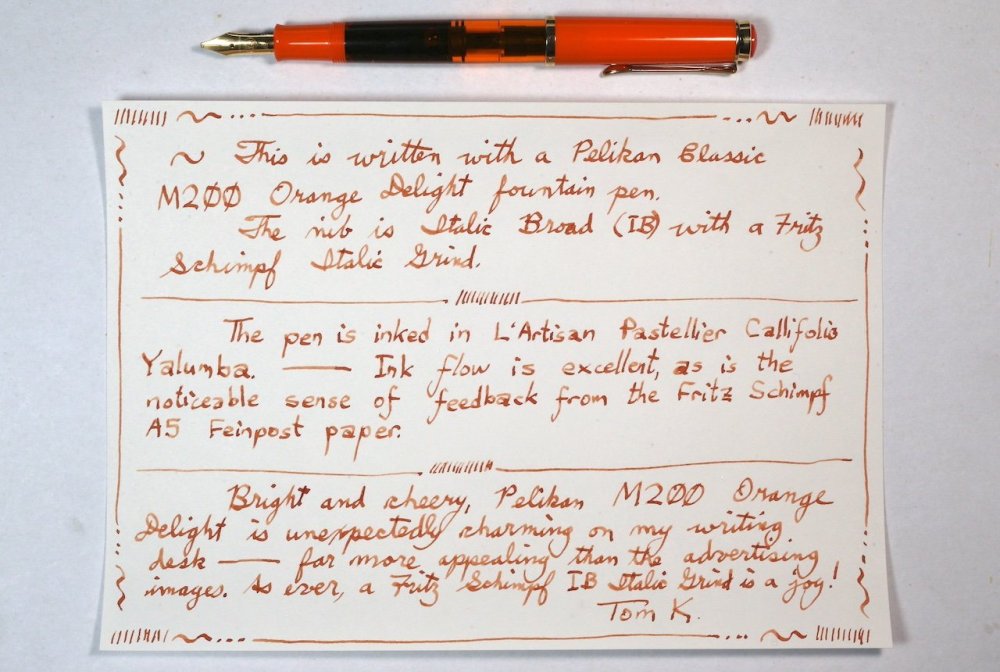 ~ This is written with a Pelikan Classic
M2ØØ Orange Delight fountain pen.
The nib is Italic Broad (IB) with a Fritz
Schimpf Italic Grind.
The pen is inked in L'Artisan Pastellier Callifolio
Yalumba. — Ink flow is excellent, as is the
noticeable sense of feedback from the Fritz Schimpf
A5 Feinpost paper.
Bright and cheery, Pelikan M2ØØ Orange
Delight is unexpectedly charming on my writing
desk — far more appealing than the advertising
images. As ever, a Fritz Schimpf IB Italic Grind is a joy!
Tom K.